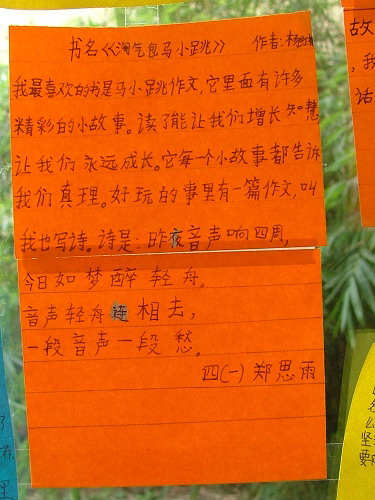 书名《淘气包马小跳》 作者：杨红樱
我最喜欢的书是马小跳作文，它里面有许多
精彩的小故事。读了能让我们增长知慧
让我们永远成长。它每一个小故事都告诉
我们真理。好玩的事里有一篇作文，叫
我也写诗。诗是：昨夜音声响四周，
今日如梦醉轻舟。
音声轻舟连相去，
一段音声一段愁。
四（一）郑思雨
故
，我
话